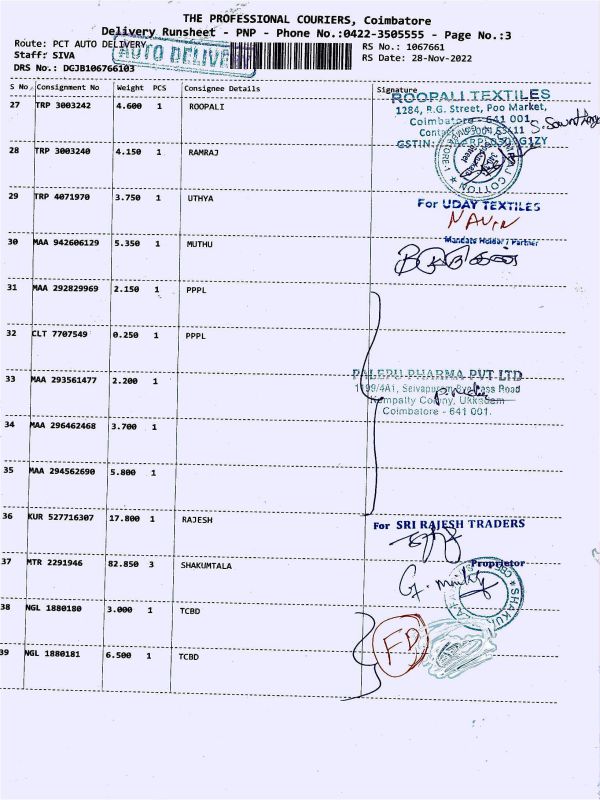 THE PROFESSIONAL COURIERS, Coimbatore
Delivery Runsheet - PNP - Phone No.:0422-3505555 - Page No.:3
Route: PCT AUTO DELIVERY
AUTO DELIVE
RS No.: 1067661
Staff: SIVA
RS Date: 28-Nov-2022
DRS No.: DGJB106766103
S No Consignment No Weight PCS Consignee Details Signature
27 TRP 3003242 4.600 1 ROOPALI
ROOPALI TEXTILES
1284, R.G. Street, Poo Market,
Coimbatore - 641 001.
GSTIN:
28 TRP 3003240 4.150 1 RAMRAJ
29 TRP 4071970 3.750 1 UTHYA
For UDAY TEXTILES
NAVIN
Mandate Holder / Partner
30 MAA 942606129 5.350 1 MUTHU
31 MAA 292829969 2.150 1 PPPL
32 CLT 7707549 0.250 1 PPPL
33 MAA 293561477 2.200 1
PALEPU PHARMA PVT LTD
Coimbatore - 641 001.
34 MAA 296462468 3.700 1
35 MAA 294562690 5.800 1
36 KUR 527716307 17.800 1 RAJESH
For SRI RAJESH TRADERS
Proprietor
37 MTR 2291946 82.850 3 SHAKUMTALA
38 NGL 1880180 3.000 1 TCBD
FD
39 NGL 1880181 6.500 1 TCBD